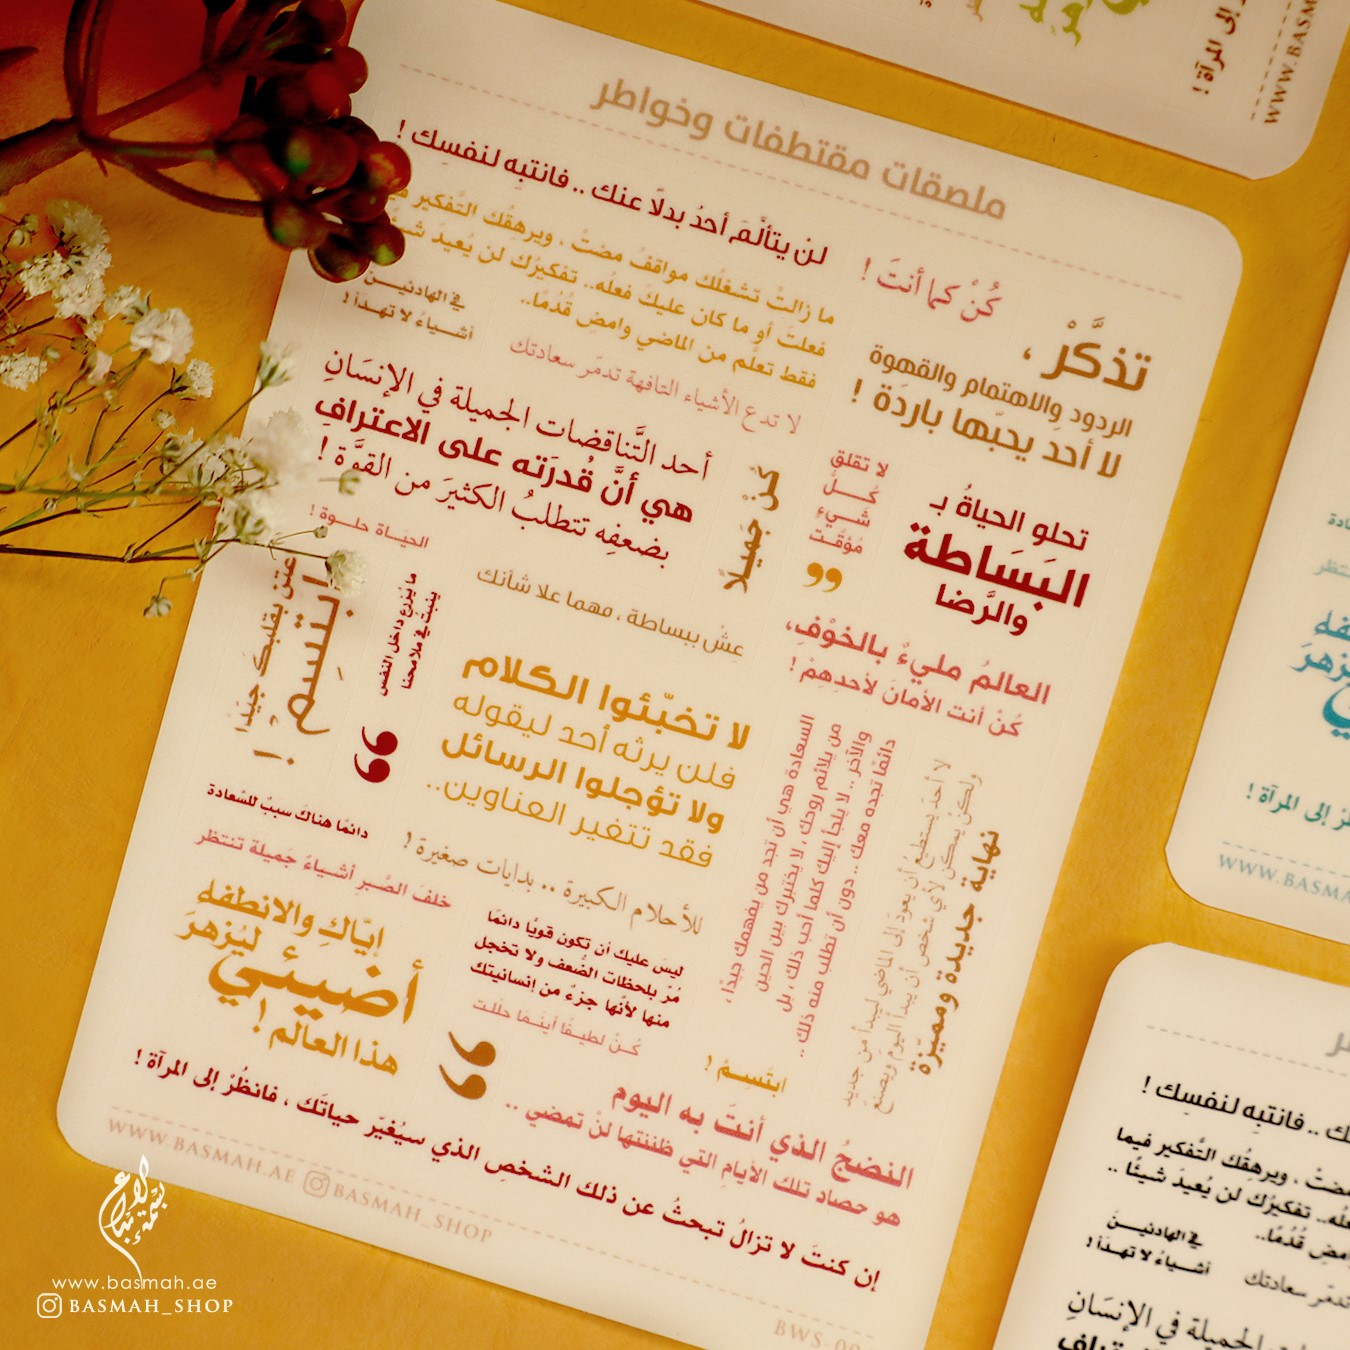 ملصقات مقتطفات وخواطر
لن يتألَّمَ أحدُ بدلاً عنك .. فانتبِه لنفسِك !
كُنْ كما أنتَ !
ما زالتْ تشغلُك مواقفُ مضتْ ، ويرهِقُك التَّفكير
فعلتَ أو ما كان عليكَ فعلُه.. تفكيرُك لن يُعيدَ
فقط تعلَّم من الماضي وامضِ قُدُمًا..
في الهادئين
أشياءُ لا تهدأ !
لا تدع الأشياء التافهة تدمّر سعادتك
تذكَّرْ ،
الردود والاهتمام والقهوة
لا أحد يحبّها باردَة !
أحد التَّناقضات الجميلة في الإنسَانِ
هي أنَّ قُدرَته على الاعترافِ
بضعفِه تتطلبُ الكثيرَ من القوَّة !
كُنْ جَميلًا
لا تقلق
كُلُّ
شَيءٍ
مُؤقَّتْ
تحلو الحياةُ بـ
البَسَاطة
والرَّضا
الحيَـاة حلـوة !
عِشْ ببساطة ، مهما علا شأنك
العالمُ مليءٌ بالخوْفِ،
كُنْ أنت الأمانَ لأحدِهِمْ !
اعتنِ بقلبكَ جيّدًا
ابتَسِم !
ما يُزرع داخل النفس
ينبتُ في ملامحنا
لا تخبّئوا الكلام
فلن يرثه أحد ليقوله
ولا تؤجلوا الرسائل
فقد تتغير العناوين..
السعادة هي أن تجد من يفهمك جيدًا ،
من يلائم روحك ، لا يختبرك بين الحين
والآخر .. لا يلجأ إليك كلما أحب ذلك ، بل
دائمًا تجده معك .. دون أن تطلب منه ذلك ..
لا أحدَ يستطيعُ أن يعودَ إلى الماضي ليبدأ من جديد
ولكنْ يمكن لأي شخص أن يبدأ اليوم ويصنع
نهاية جديدة ومميّزة
دائمًا هناك سببٌ للسّعادة
خلفَ الصَّبرِ أشياءٌ جَميلة تنتظر
للأحلام الكبيرة .. بدايات صغيرة !
إيّاكِ والانطفاء
أضيئي ليُزهرَ
هذا العالم !
ليسَ عليك أن تكون قويًا دائمًا
مُرّ بلحظات الضُعف ولا تخجل
منها لأنّها جزءٌ من إنسانيتك
كُـنْ لطيـفًا أينَـمَا حلَلـتَ
ابتَسِمْ !
النضجُ الذي أنتَ به اليوم
هو حصاد تلك الأيامِ التي ظننتها لنْ تمضي ..
إن كنتَ لا تزالُ تبحثُ عن ذلك الشخصِ الذي سيُغيّر حياتَك ، فانظُرْ إلى المرآة !
WWW.BASMAH.AE BASMAH_SHOP
BWS-00
إلى المرآة !
WWW.BASM
إلى المرآة !
WWW.BASMA
.. فانتبِه لنفسِك !
، ويرهِقُك التَّفكير فيما
تفكيرُك لن يُعيدَ شيئًا ..
قُدُمًا..
في الهادئين
أشياءُ لا تهدأ !
تدمّر سعادتك
الجميلة في الإنسَانِ
www.basmah.ae
BASMAH_SHOP